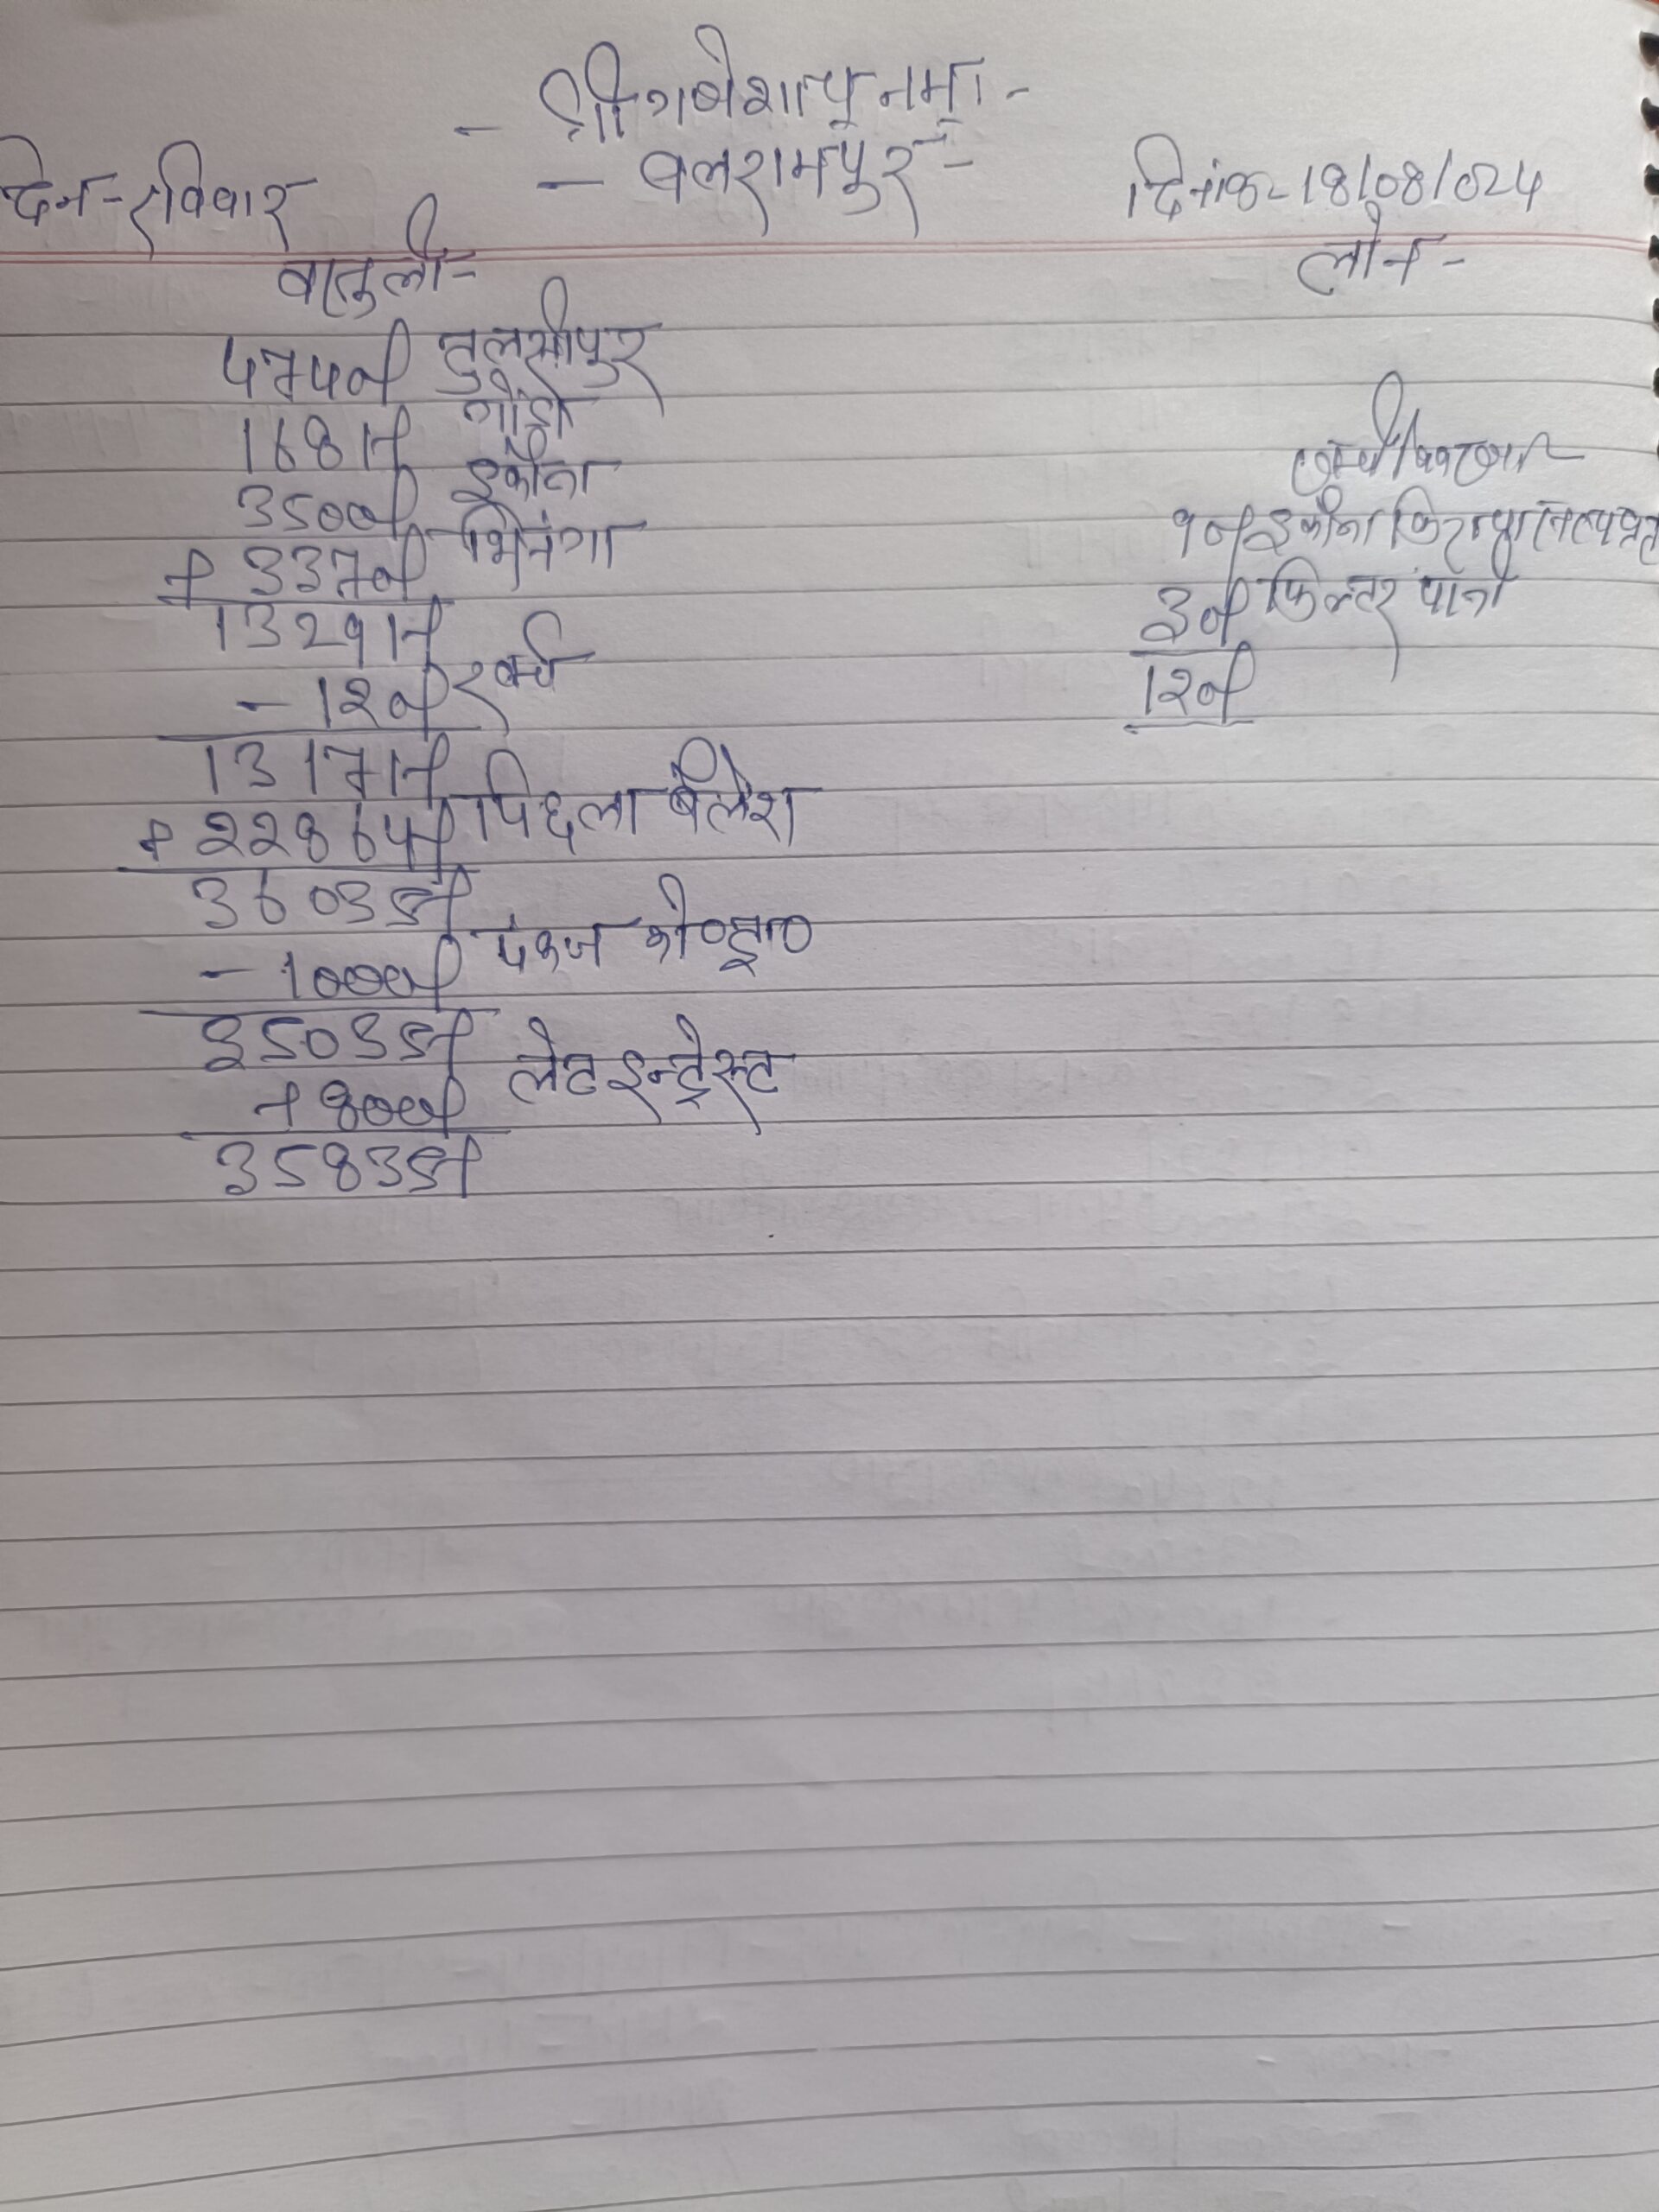 - श्री गणेशाय नमः -
- बलरामपुर -
दिन - रविवार
दिनांक - 18/08/024
वासुली -
लोन -
4740/- तुलसीपुर
1681/- गोंडा
3500/- इकौना
+ 3370/- भिनगा
13291/-
- 120/- खर्च
13171/-
+ 22864/- पिछला बैलेंश
36035/-
- 1000/- पंकज
35035/-
+ 800/- लेट इन्ट्रेस्ट
35835/-
खर्च विवरण -
90/- इकौना किराया
30/- फिल्टर पानी
120/-